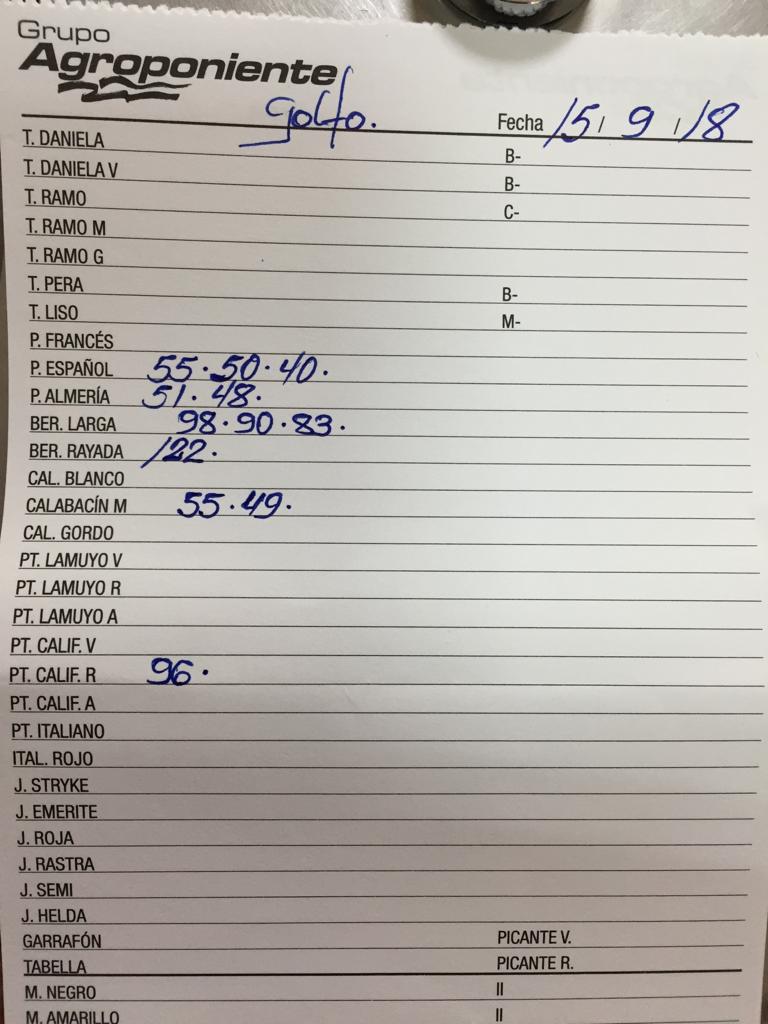 Grupo
Agroponiente
golfo. Fecha 15/ 9 /18
T. DANIELA B-
T. DANIELA V B-
T. RAMO C-
T. RAMO M
T. RAMO G
T. PERA B-
T. LISO M-
P. FRANCÉS
P. ESPAÑOL 55·50·40.
P. ALMERÍA 51·48.
BER. LARGA 98·90·83.
BER. RAYADA 122.
CAL. BLANCO
CALABACÍN M 55·49.
CAL. GORDO
PT. LAMUYO V
PT. LAMUYO R
PT. LAMUYO A
PT. CALIF. V
PT. CALIF. R 96.
PT. CALIF. A
PT. ITALIANO
ITAL. ROJO
J. STRYKE
J. EMERITE
J. ROJA
J. RASTRA
J. SEMI
J. HELDA
GARRAFÓN PICANTE V.
TABELLA PICANTE R.
M. NEGRO II
M. AMARILLO II